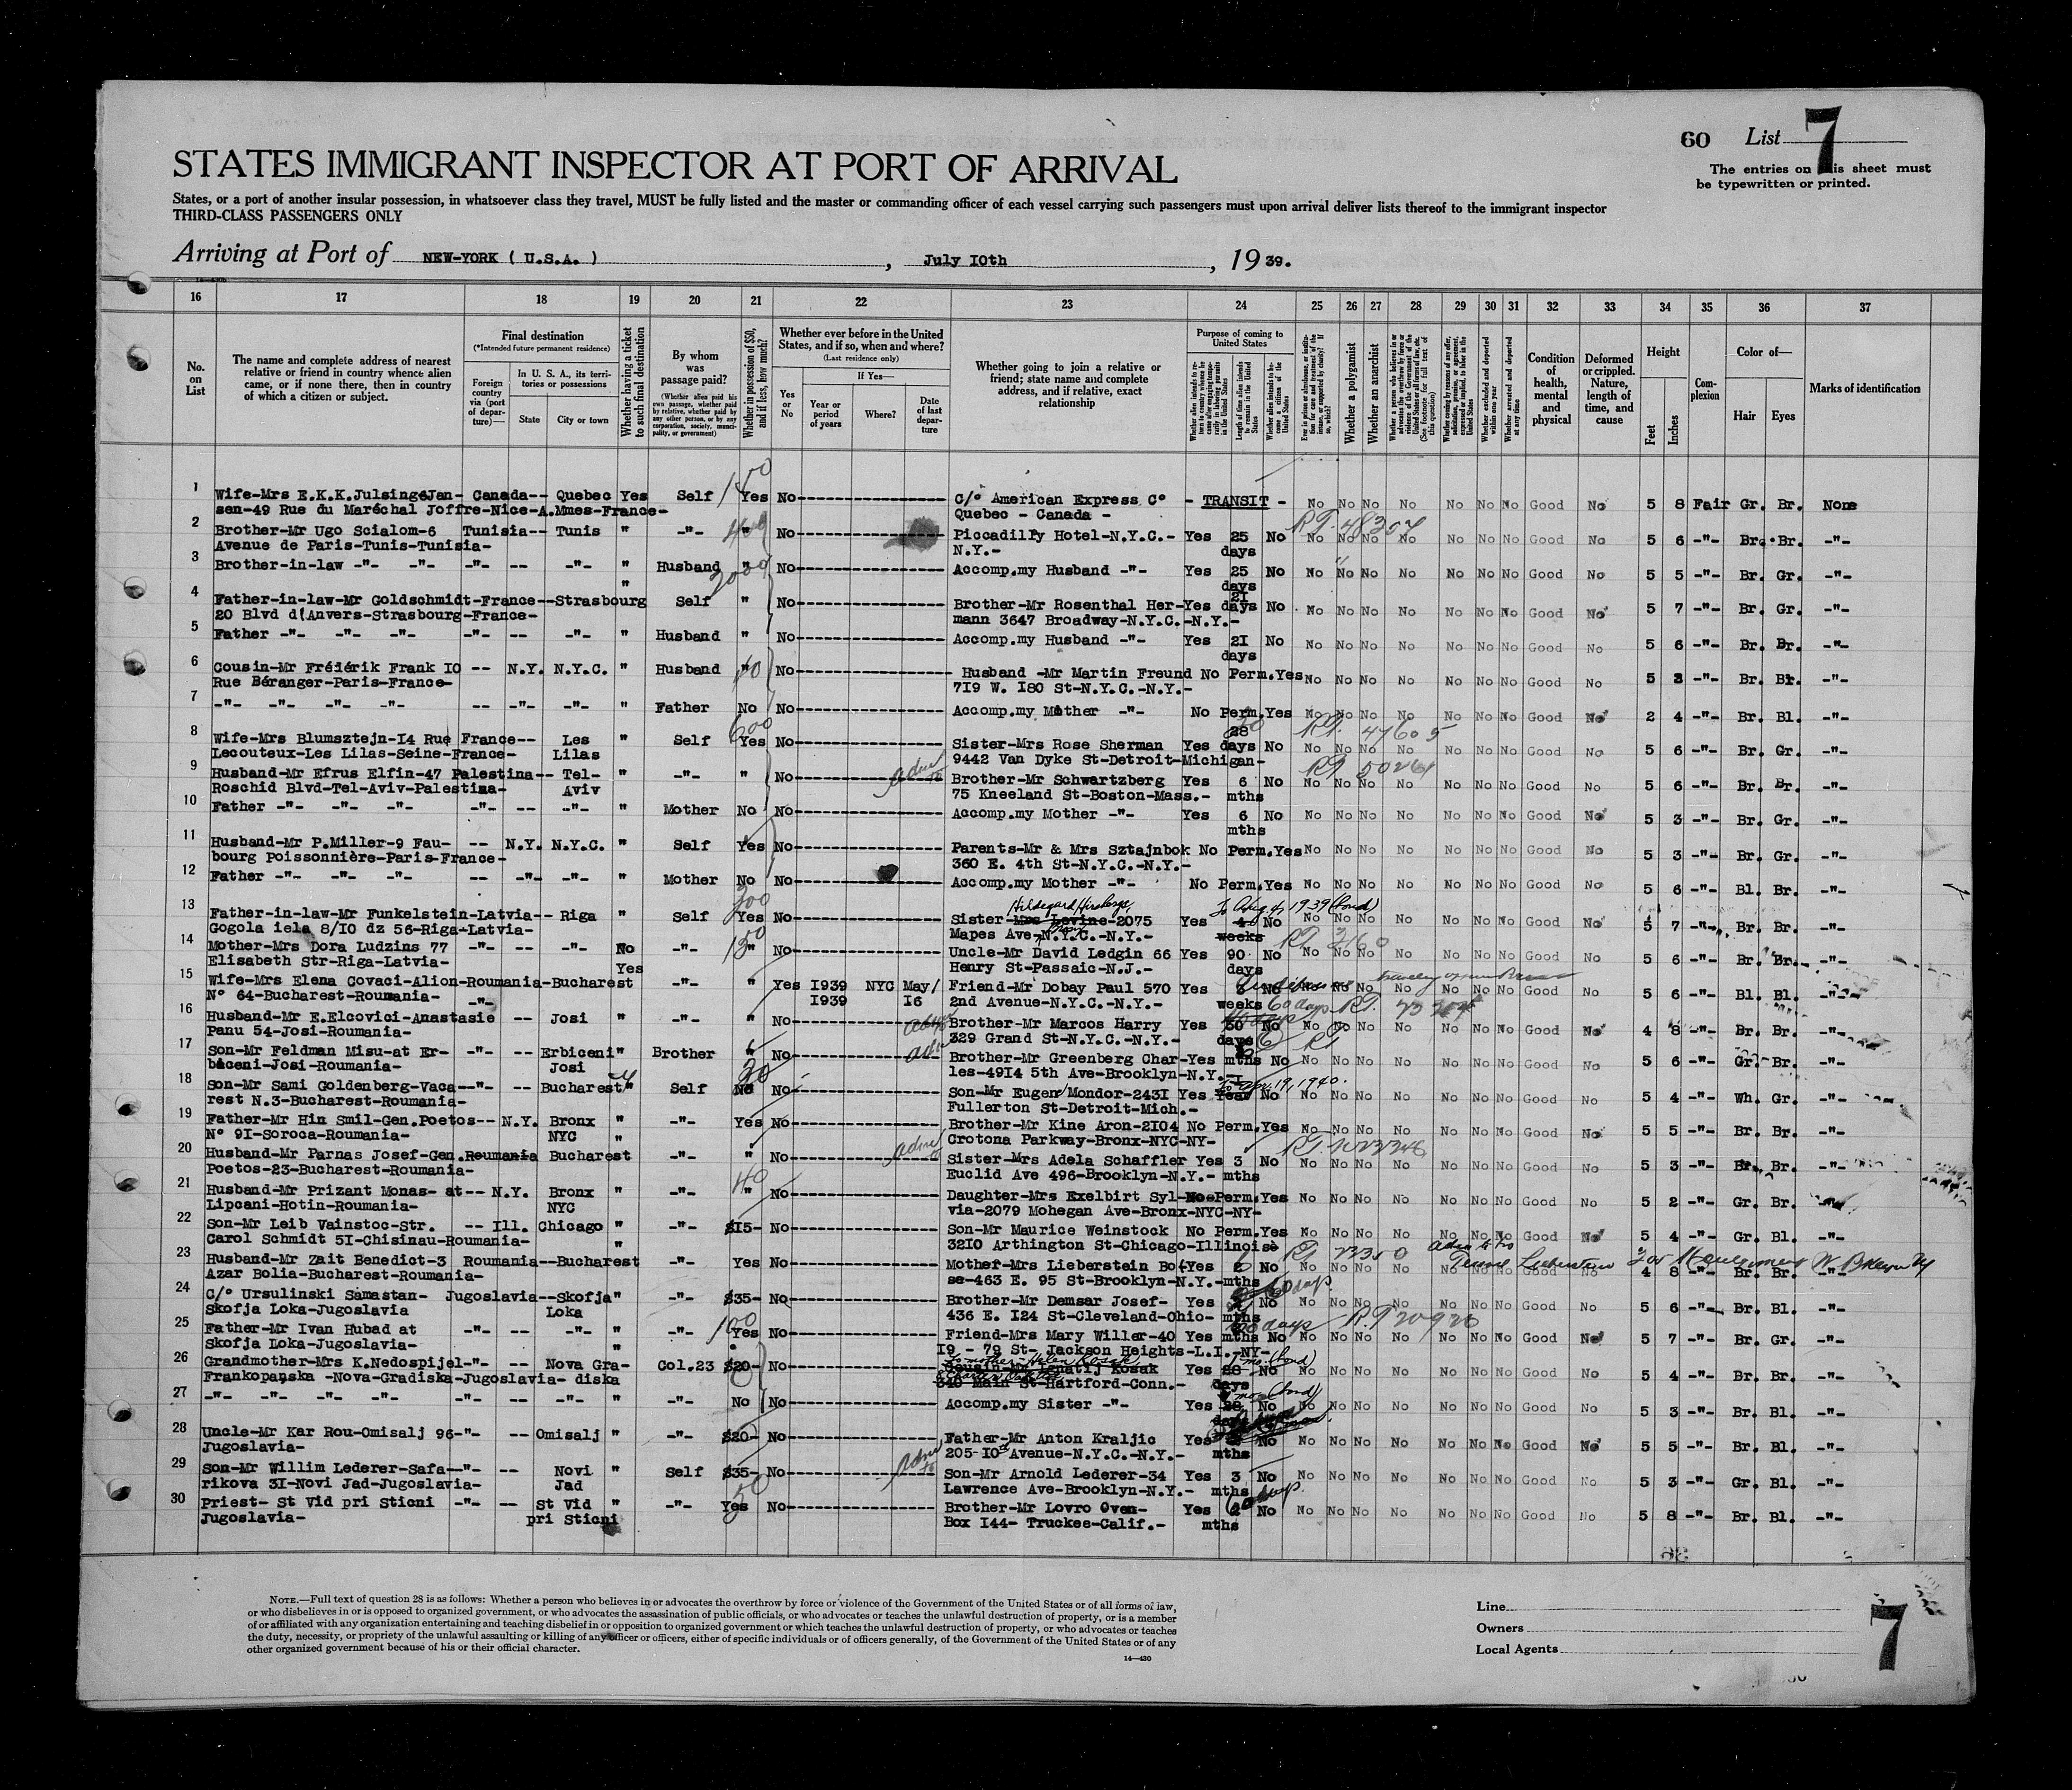 60 List 7
STATES IMMIGRANT INSPECTOR AT PORT OF ARRIVAL
The entries on this sheet must
be typewritten or printed.
States, or a port of another insular possession, in whatsoever class they travel, MUST be fully listed and the master or commanding officer of each vessel carrying such passengers must upon arrival deliver lists thereof to the immigrant inspector
THIRD-CLASS PASSENGERS ONLY
Arriving at Port of NEW-YORK ( U.S.A. ) , July 10th , 19 39.
16 17 18 19 20 21 22 23 24 25 26 27 28 29 30 31 32 33 34 35 36 37
No. on List
The name and complete address of nearest relative or friend in country whence alien came, or if none there, then in country of which a citizen or subject.
Final destination
(*Intended future permanent residence)
Foreign country via (port of departure)—
In U. S. A., its territories or possessions
State
City or town
Whether having a ticket to such final destination
By whom was passage paid?
(Whether alien paid his own passage, whether paid by relative, whether paid by any other person, or by any corporation, society, municipality, or government)
Whether in possession of $50, and if less, how much?
Whether ever before in the United States, and if so, when and where?
(Last residence only)
Yes or No
If Yes—
Year or period of years
Where?
Date of last departure
Whether going to join a relative or friend; state name and complete address, and if relative, exact relationship
Purpose of coming to United States
Whether a polygamist
Whether an anarchist
Whether excluded and deported within one year
Whether arrested and deported at any time
Condition of health, mental and physical
Deformed or crippled. Nature, length of time, and cause
Height
Feet
Inches
Complexion
Color of—
Hair
Eyes
Marks of identification
1 Wife-Mrs E.K.K.Julsing&Jan- Canada-- Quebec Yes Self 150 Yes No C/o American Express Co - TRANSIT - No No No No No No No Good No 5 8 Fair Gr. Br. None
sen-49 Rue du Maréchal Joffre-Nice-A.Mmes-France- Quebec - Canada -
2 Brother-Mr Ugo Scialom-6 Tunisia-- Tunis " -"- 400 " No Piccadilly Hotel-N.Y.C.- Yes 25 No RT. 48307 No No No No No No No Good No 5 6 -"- Br. Br. -"-
Avenue de Paris-Tunis-Tunisia- N.Y.- days
3 Brother-in-law -"- -"- -"- -- -"- " Husband " No Accomp.my Husband -"- Yes 25 No No No No No No No No Good No 5 5 -"- Br. Gr. -"-
" days
4 Father-in-law-Mr Goldschmidt-France--Strasbourg Self 2000 " No Brother-Mr Rosenthal Her-Yes 21 days No No No No No No No No Good No 5 7 -"- Br. Gr. -"-
20 Blvd d'Anvers-Strasbourg-France- mann 3647 Broadway-N.Y.C.-N.Y.-
5 Father -"- -"- -"- -"- -- -"- " Husband " No Accomp.my Husband -"- Yes 21 No No No No No No No No Good No 5 6 -"- Br. Br. -"-
days
6 Cousin-Mr Frédérik Frank 10 -- N.Y. N.Y.C. " Husband " No Husband -Mr Martin Freund No Perm.Yes No No No No No No No Good No 5 3 -"- Br. Br. -"-
Rue Béranger-Paris-France- 719 W. 180 St-N.Y.C.-N.Y.-
7 -"- -"- -"- -"- -- -"- -"- " Father No No Accomp.my Mother -"- No Perm.Yes No No No No No No No Good No 2 4 -"- Br. Bl. -"-
8 Wife-Mrs Blumsztejn-14 Rue France-- Les " Self 600 Yes No Sister-Mrs Rose Sherman Yes 28 days No RT. 47605 No No No No No No No Good No 5 6 -"- Br. Gr. -"-
Lecouteux-Les Lilas-Seine-France- Lilas 9442 Van Dyke St-Detroit-Michigan-
9 Husband-Mr Efrus Elfin-47 Palestina-- Tel- " -"- " No Brother-Mr Schwartzberg Yes 6 No No No No No No No No Good No 5 6 -"- Br. Br. -"-
Roschid Blvd-Tel-Aviv-Palestina- Aviv 75 Kneeland St-Boston-Mass.- mths
10 Father -"- -"- -"- -"- -- -"- " Mother No No Accomp.my Mother -"- Yes 6 No No No No No No No No Good No 5 3 -"- Br. Gr. -"-
mths
11 Husband-Mr P.Miller-9 Fau- -- N.Y. N.Y.C. " Self Yes No Parents-Mr & Mrs Sztajnbok No Perm.Yes No No No No No No No Good No 5 3 -"- Br. Gr. -"-
bourg Poissonnière-Paris-France- 360 E. 4th St-N.Y.C.-N.Y.-
12 Father -"- -"- -"- -- -"- -"- " Mother No No Accomp.my Mother -"- No Perm.Yes No No No No No No No Good No 5 6 -"- Bl. Br. -"-
13 Father-in-law-Mr Funkelstein-Latvia-- Riga " Self 300 Yes No Sister-Mrs Levine-2075 Yes 4 No To Aug 4, 1939 (bond) No No No No No No No Good No 5 7 -"- Br. Br. -"-
Gogola iela 8/10 dz 56-Riga-Latvia- Mapes Ave-N.Y.C.-N.Y.- weeks
14 Mother-Mrs Dora Ludzins 77 -"- -- -"- No -"- " No Uncle-Mr David Ledgin 66 Yes 90 No No No No No No No No Good No 5 6 -"- Br. Br. -"-
Elisabeth Str-Riga-Latvia- Yes Henry St-Passaic-N.J.- days
15 Wife-Mrs Elena Covaci-Alion-Roumania-Bucharest -"- " Yes 1939 NYC May/ Friend-Mr Dobay Paul 570 Yes No No No No No No No No Good No 5 6 -"- Bl. Bl. -"-
No 64-Bucharest-Roumania- 1939 16 2nd Avenue-N.Y.C.-N.Y.- weeks 60 days RT.
16 Husband-Mr E.Elcovici-Anastasie -"- -- Josi " -"- " No Brother-Mr Marcos Harry Yes 30 No No No No No No No No Good No 4 8 -"- Br. Br. -"-
Panu 54-Josi-Roumania- 329 Grand St-N.Y.C.-N.Y.- days
17 Son-Mr Feldman Misu-at Er- -"- -- Erbiceni" Brother " No Brother-Mr Greenberg Char-Yes mths No No No No No No No No Good No 5 6 -"- Gr. Br. -"-
biceni-Josi-Roumania- Josi les-4914 5th Ave-Brooklyn-N.Y.-
18 Son-Mr Sami Goldenberg-Vaca--"- -- Bucharest" Self No No Son-Mr Eugen Mondor-2431 Yes Year No To Apr. 19, 1940. No No No No No No No Good No 5 4 -"- Wh. Gr. -"-
rest N.3-Bucharest-Roumania- Fullerton St-Detroit-Mich.-
19 Father-Mr Hin Smil-Gen.Poetos-- N.Y. Bronx " -"- Yes No Brother-Mr Kine Aron-2104 No Perm.Yes No No No No No No No Good No 5 5 -"- Br. Br. -"-
No 91-Soroca-Roumania- NYC " Crotona Parkway-Bronx-NYC-NY-
20 Husband-Mr Parnas Josef-Gen.Roumania Bucharest -"- " No Sister-Mrs Adela Schaffler Yes 3 No No No No No No No No Good No 5 3 -"- Br. Br. -"-
Poetos-23-Bucharest-Roumania- Euclid Ave 496-Brooklyn-N.Y.- mths
21 Husband-Mr Prizant Monas- at-- N.Y. Bronx " -"- 40 " No Daughter-Mrs Exelbirt Syl-No-Perm.Yes No No No No No No No Good No 5 2 -"- Gr. Br. -"-
Lipcani-Hotin-Roumania- NYC via-2079 Mohegan Ave-Bronx-NYC-NY-
22 Son-Mr Leib Vainstoc-Str. -- Ill. Chicago " -"- $15- No Son-Mr Maurice Weinstock No Perm.Yes No No No No No No No Good No 5 4 -"- Gr. Bl. -"-
Carol Schmidt 51-Chisinau-Roumania- " 3210 Arthington St-Chicago-Illinois-
23 Husband-Mr Zait Benedict-3 Roumania--Bucharest -"- Yes No Mother-Mrs Lieberstein Bo-Yes 2 No No No No No No No No Good No 4 8 -"- Br. Br. -"-
Azar Bolia-Bucharest-Roumania- se-463 E. 95 St-Brooklyn-N.Y.-mths 60 days
24 C/o Ursulinski Samastan- Jugoslavia--Skofja" -"- $35- No Brother-Mr Demsar Josef- Yes No No No No No No No No Good No 5 6 -"- Br. Bl. -"-
Skofja Loka-Jugoslavia Loka 436 E. 124 St-Cleveland-Ohio- mths
25 Father-Mr Ivan Hubad at -"- -- -"- " -"- 100 Yes No Friend-Mrs Mary Willer-40 Yes mths No No No No No No No No Good No 5 7 -"- Br. Gr. -"-
Skofja Loka-Jugoslavia- " 19 - 79 St- Jackson Heights-L.I.-NY-
26 Grandmother-Mrs K.Nedospijel-"- -- Nova Gra- Col.23 $20- No Cousin-Mr Ignatij Kosak Yes 28 No No No No No No No No Good No 5 4 -"- Br. Br. -"-
Frankopanska -Nova-Gradiska-Jugoslavia- diska 340 Main St-Hartford-Conn.- days
27 -"- -"- -"- -"- -"- -- -"- " -"- No No Accomp.my Sister -"- Yes 28 No No No No No No No No Good No 5 3 -"- Br. Bl. -"-
28 Uncle-Mr Kar Rou-Omisalj 96-"- -- Omisalj " -"- $20- No Father-Mr Anton Kraljic Yes No No No No No No No No Good No 5 5 -"- Br. Bl. -"-
Jugoslavia- 205-10th Avenue-N.Y.C.-N.Y.- mths
29 Son-Mr Willim Lederer-Safa--"- -- Novi " Self $35- No Son-Mr Arnold Lederer-34 Yes 3 No No No No No No No No Good No 5 3 -"- Gr. Bl. -"-
rikova 31-Novi Jad-Jugoslavia- Jad Lawrence Ave-Brooklyn-N.Y.- mths
30 Priest- St Vid pri Sticni -"- -- St Vid " -"- 50 Yes No Brother-Mr Lovro Oven- Yes 2 No 60 days. No No No No No No No Good No 5 8 -"- Br. Bl. -"-
Jugoslavia- pri Sticni Box 144- Truckee-Calif.- mths
NOTE.—Full text of question 28 is as follows: Whether a person who believes in or advocates the overthrow by force or violence of the Government of the United States or of all forms of law,
or who disbelieves in or is opposed to organized government, or who advocates the assassination of public officials, or who advocates or teaches the unlawful destruction of property, or is a member
of or affiliated with any organization entertaining and teaching disbelief in or opposition to organized government or which teaches the unlawful destruction of property, or who advocates or teaches
the duty, necessity, or propriety of the unlawful assaulting or killing of any officer or officers, either of specific individuals or of officers generally, of the Government of the United States or of any
other organized government because of his or their official character.
14—430
Line
Owners
Local Agents
7